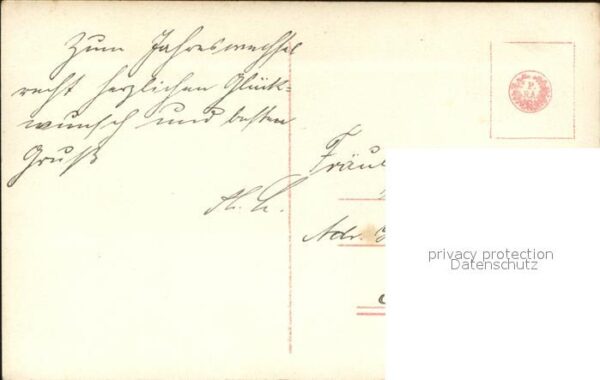 Zum Jahreswechsel
recht herzlichen Glück-
wunsch und besten
Gruß
Fräul
Adr.
privacy protection
Datenschutz